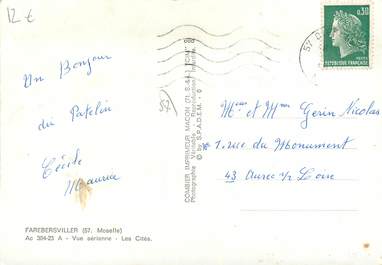 12 €
57
0,30
POSTES
REPUBLIQUE FRANÇAISE
Un Bonjour
du Patelin
Cécile
Maurice
57)
COMBIER IMPRIMEUR MACON (S.-&-L.) "CIM"
Photographie Véritable - Reproduction interdite
© by S.P.A.D.E.M. - 0
Mr et Mme Gerin Nicolas
1. rue du Monument
43 Aurec s/ Loire
FAREBERSVILLER (57. Moselle)
Ac 384-23 A - Vue aérienne - Les Cités.